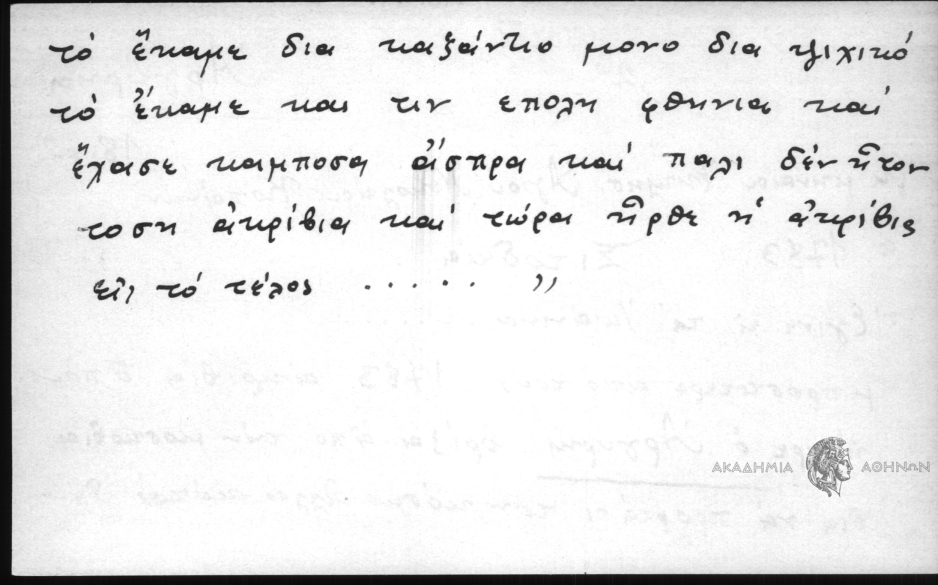 τό ἔκαμε δια καζάντιο μονο δια ψιχικό
τό ἔκαμε και τιν επολη φθηνια καί
ἔχασε καμποσα ἄσπρα καί παλι δέν ἦτον
τοση ἀκρίβια καί τώρα ἦρθε ἡ ἀκρίβις
εἰς τό τέλος ...... ,,
ΑΚΑΔΗΜΙΑ ΑΘΗΝΩΝ